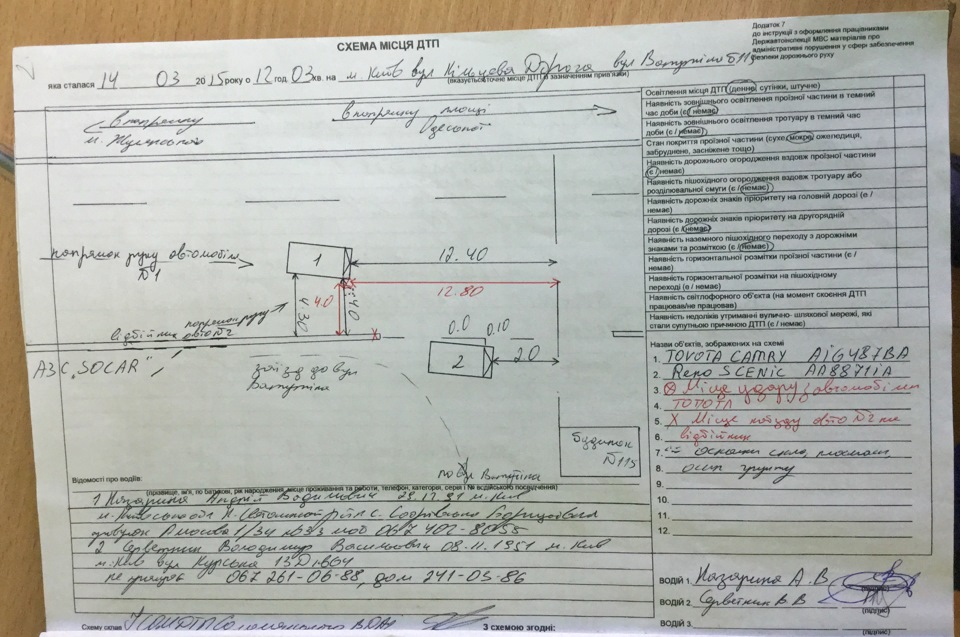 Додаток 7
до інструкції з оформлення працівниками
Державтоінспекції МВС матеріалів про
адміністративні порушення у сфері забезпечення
безпеки дорожнього руху
СХЕМА МІСЦЯ ДТП
яка сталася 14 03 2015 року о 12 год. 03 хв. на м. Київ вул Кільцева Дорога вул Ватутіна 115
(вказується точне місце ДТП із зазначенням прив'язки)
В напрямку
м. Жуляни
в напрямку площі
Одеської
Освітлення місця ДТП (денне, сутінки, штучно)
Наявність зовнішнього освітлення проїзної частини в темний
час доби (є / немає)
Наявність зовнішнього освітлення тротуару в темний час
доби (є / немає)
Стан покриття проїзної частини (сухе, мокре, ожеледиця,
забруднене, засніжене тощо)
Наявність дорожнього огородження вздовж проїзної частини
(є / немає)
Наявність пішохідного огородження вздовж тротуару або
розділювальної смуги (є / немає)
Наявність дорожніх знаків пріоритету на головній дорозі (є /
немає)
Наявність дорожніх знаків пріоритету на другорядній
дорозі (є / немає)
Наявність наземного пішохідного переходу з дорожніми
знаками та розміткою (є / немає)
Наявність горизонтальної розмітки проїзної частини (є /
немає)
Наявність горизонтальної розмітки на пішохідному
переході (є / немає)
Наявність світлофорного об'єкта (на момент скоєння ДТП
працював/не працював)
Наявність недоліків утриманні вулично- шляхової мережі, які
стали супутньою причиною ДТП (є / немає)
напрямок руху автомобіля
№1
1
12.40
12.80
4.30
4.0
4.40
напрямок руху
авто №2
відбійник
АЗС "SOCAR"
заїзд до вул
Ватутіна
0.0
0.10
2
2.0
Будинок
№115
по вул Ватутіна
Назви об'єктів, зображених на схемі
1. TOYOTA CAMRY АІ6487ВА
2. Рено SCENIC АА8871ІА
3. ⊗ Місце удару з автомобілем
4. ТОЙОТА
5. X Місце наїзду авто №2 на
6. відбійник
7. осколки скла, пластмаси,
8. осип грунту
9.
10.
11.
12.
Відомості про водіїв:
(прізвище, ім'я, по батькові, рік народження, місце проживання та роботи, телефон, категорія, серія і № водійського посвідчення)
1 Назарина Андрій Вадимович 29.12.91 м. Київ
м. Київська обл К-Святошинський р-н с. Софіївська Борщагівка
1/34 моб 067 402-80-55
2 Серветник Володимир Васильович 08.11.1951 м. Київ
м. Київ вул Курська 13Д кв 64
не працює 067 261-06-88, дом 241-05-86
ВОДІЙ 1. Назарина А.В
(підпис)
ВОДІЙ 2. Серветник В В
(підпис)
ВОДІЙ 3.
Схему склав
З схемою згодні: